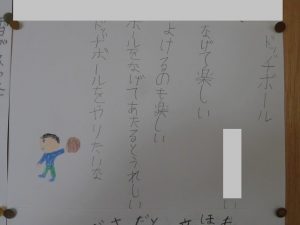 ドッヂボール
なげて楽しい
よけるのも楽しい
ボールをなげてあたるとうれしい
ドッヂボールをやりたいな